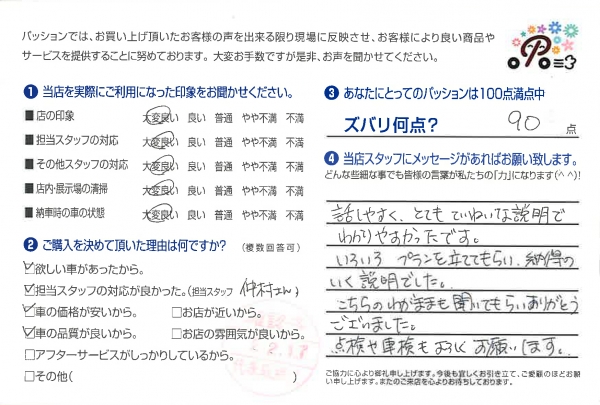 パッションでは、お買い上げ頂いたお客様の声を出来る限り現場に反映させ、お客様により良い商品や
サービスを提供することに努めております。 大変お手数ですが是非、お声を聞かせてください。
❶ 当店を実際にご利用になった印象をお聞かせください。
■ 店の印象 大変良い 良い 普通 やや不満 不満
■ 担当スタッフの対応 大変良い 良い 普通 やや不満 不満
■ その他スタッフの対応 大変良い 良い 普通 やや不満 不満
■ 店内・展示場の清掃 大変良い 良い 普通 やや不満 不満
■ 納車時の車の状態 大変良い 良い 普通 やや不満 不満
❷ ご購入を決めて頂いた理由は何ですか? (複数回答可)
☑欲しい車があったから。
☑担当スタッフの対応が良かった。(担当スタッフ 仲村さん)
☑車の価格が安いから。 □お店が近いから。
☑車の品質が良いから。 □お店の雰囲気が良いから。
□アフターサービスがしっかりしているから。
□その他( )
❸ あなたにとってのパッションは100点満点中
ズバリ何点? 90 点
❹ 当店スタッフにメッセージがあればお願い致します。
どんな些細な事でも皆様の言葉が私たちの「力」になります(^ ^)!
話しやすく、とても ていねいな説明で
わかりやすかったです。
いろいろ プランを立ててもらい、納得の
いく説明でした。
こちらのわがままも聞いてもらいありがとう
ございました。
点検や車検もよろしくお願いします。
ご協力に心より御礼申し上げます。今後も宜しくお引き立て、ご愛顧のほどお願
い申し上げます。またのご来店を心よりお待ちしております。